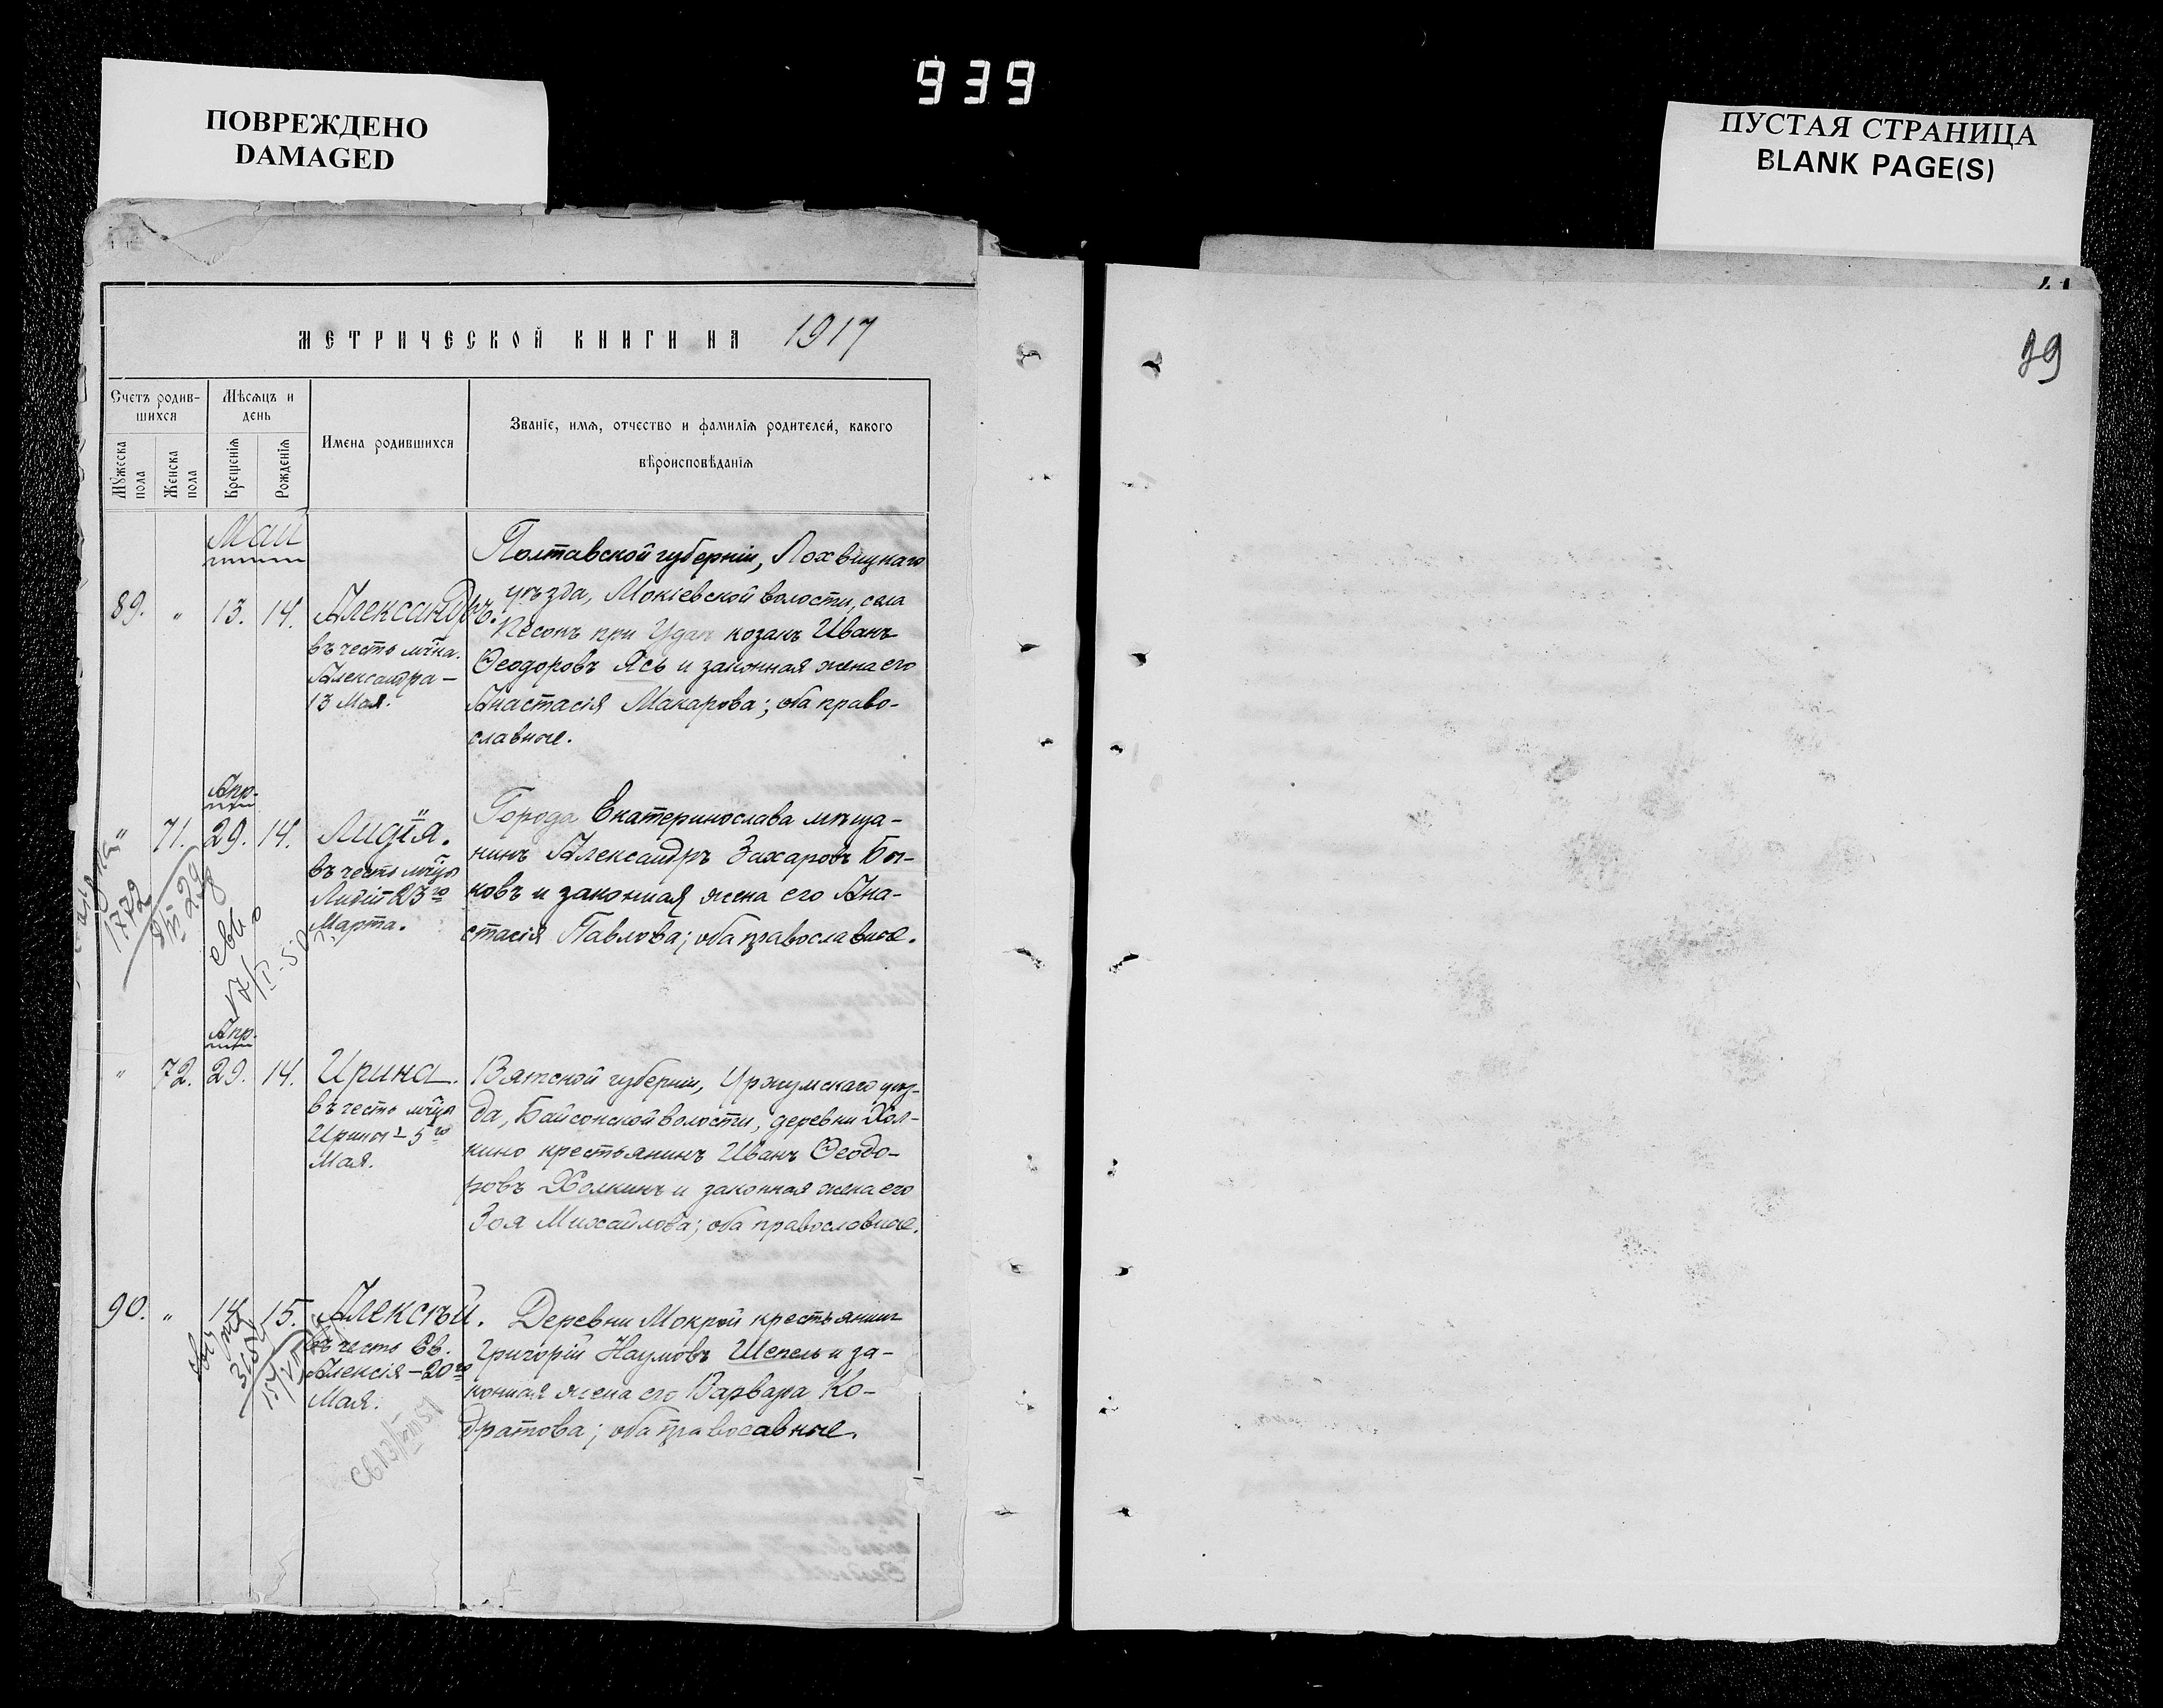 939
ПОВРЕЖДЕНО
DAMAGED
ПУСТАЯ СТРАНИЦА
BLANK PAGE(S)
41
89
МЕТРИЧЕСКОЙ КНИГИ НА 1917
Счетъ родив-
шихся
Мѣсяцъ и
день
Имена родившихся
Званіе, имя, отчество и фамилія родителей, какого
вѣроисповѣданія
Мужеска
пола
Женска
пола
Крещенія
Рожденія
Май
89. " 13. 14. Александръ.
въ честь мч̃ка.
Александра –
13 Мая.
Полтавской губерніи, Лохвицкаго
уѣзда, Мокіевской волости, села
Песокъ при Удаѣ козакъ Иванъ
Ѳеодоровъ Ясь и законная жена его
Анастасія Макарова; оба право-
славные.
Апр.
" 71. 29. 14. Лидія.
въ честь мч̃цы
Лидіи – 23го
Марта.
Города Екатеринослава мѣща-
нинъ Александръ Захаровъ Бы-
ковъ и законная жена его Ана-
стасія Павлова; оба православные.
1772
Апр.
" 72. 29. 14. Ирина.
въ честь мч̃цы
Ирины – 5го
Мая.
Вятской губерніи, Уржумскаго уѣз-
да, Байсонской волости, деревни Хол-
кино крестьянинъ Иванъ Ѳеодо-
ровъ Холкинъ и законная жена его
Зоя Михайлова; оба православные.
90. " 14 15. Алексѣй.
въ честь Св.
Алексія – 20го
Мая.
Деревни Мокрой крестьянинъ
Григорій Наумовъ Шепель и за-
конная жена его Варвара Ко-
дратова; оба правосавные.